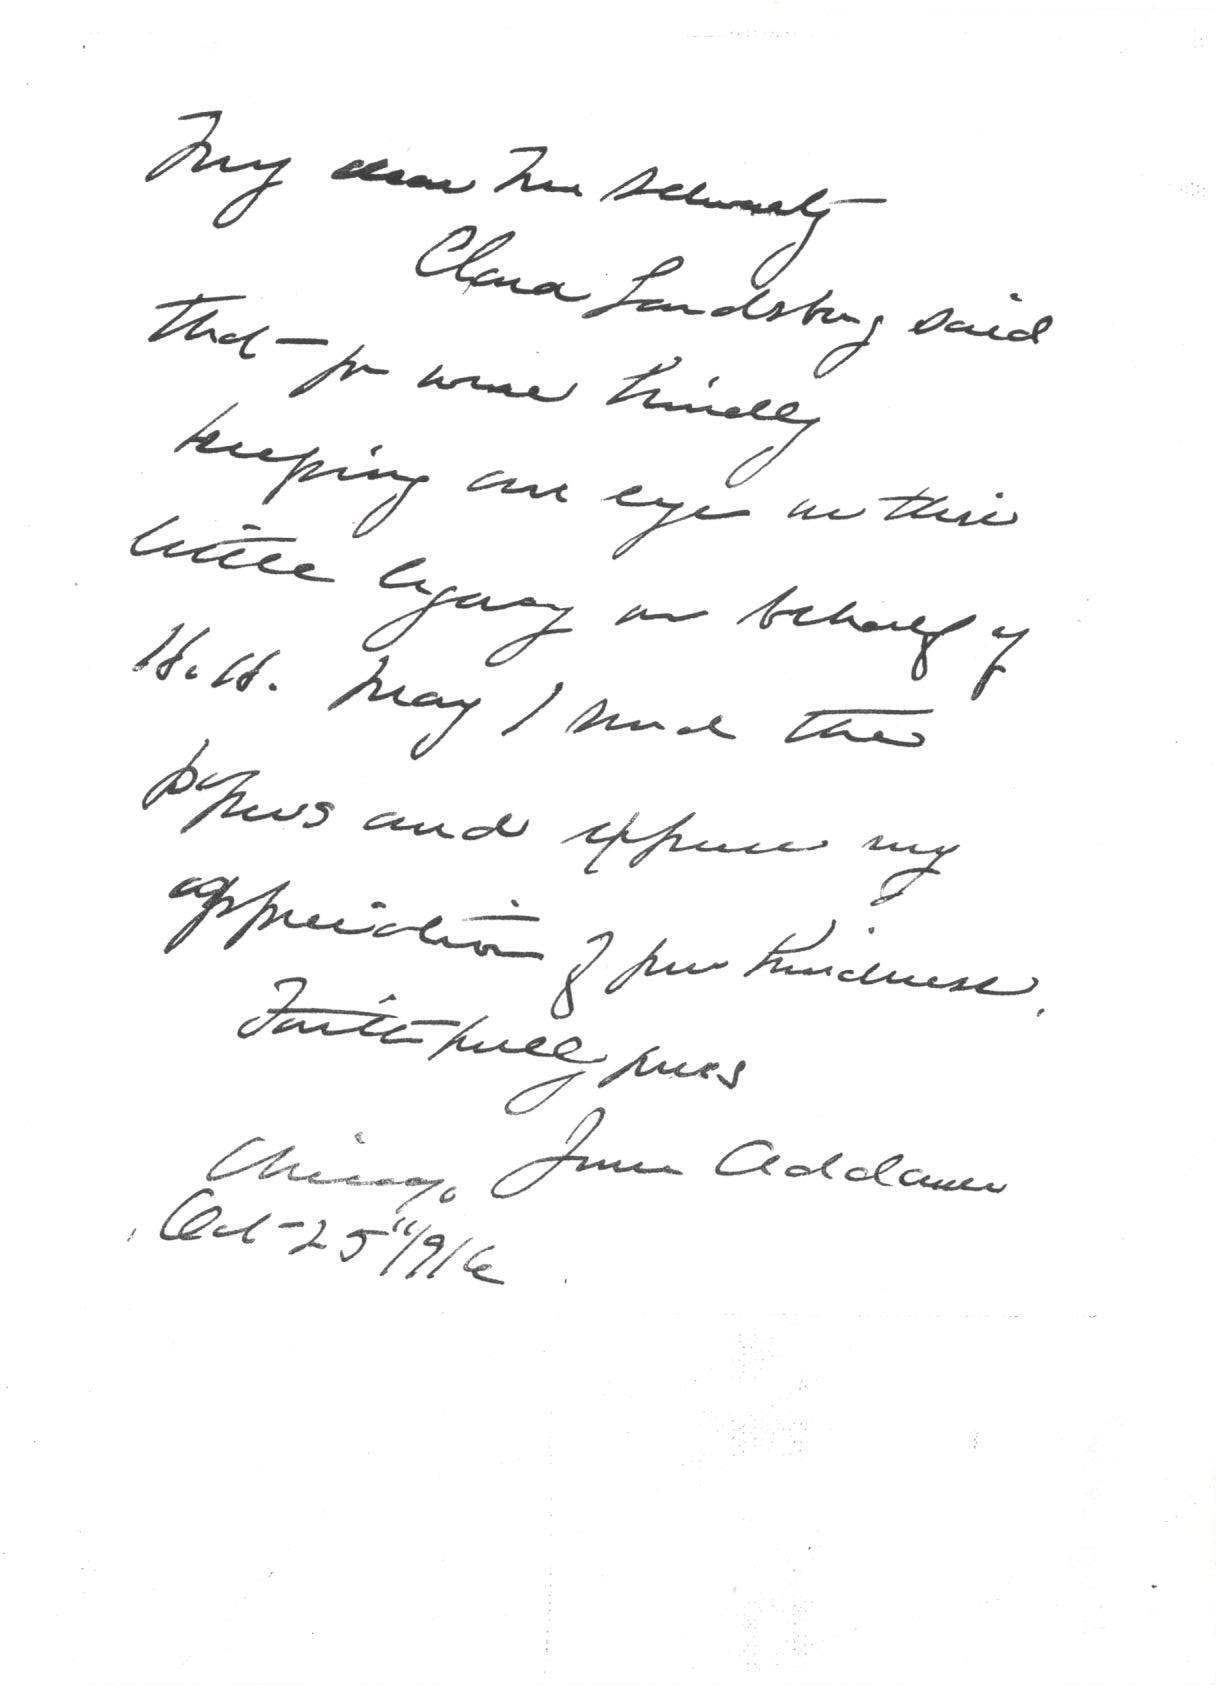 My dear Mr Schwartz
Clara Landsberg said
that you were kindly
keeping an eye on this
little legacy on behalf of
H.H. May I send the
papers and express my
appreciation of your kindness.
Faithfully yours
Jane Addams
Chicago
Oct 25" 1916